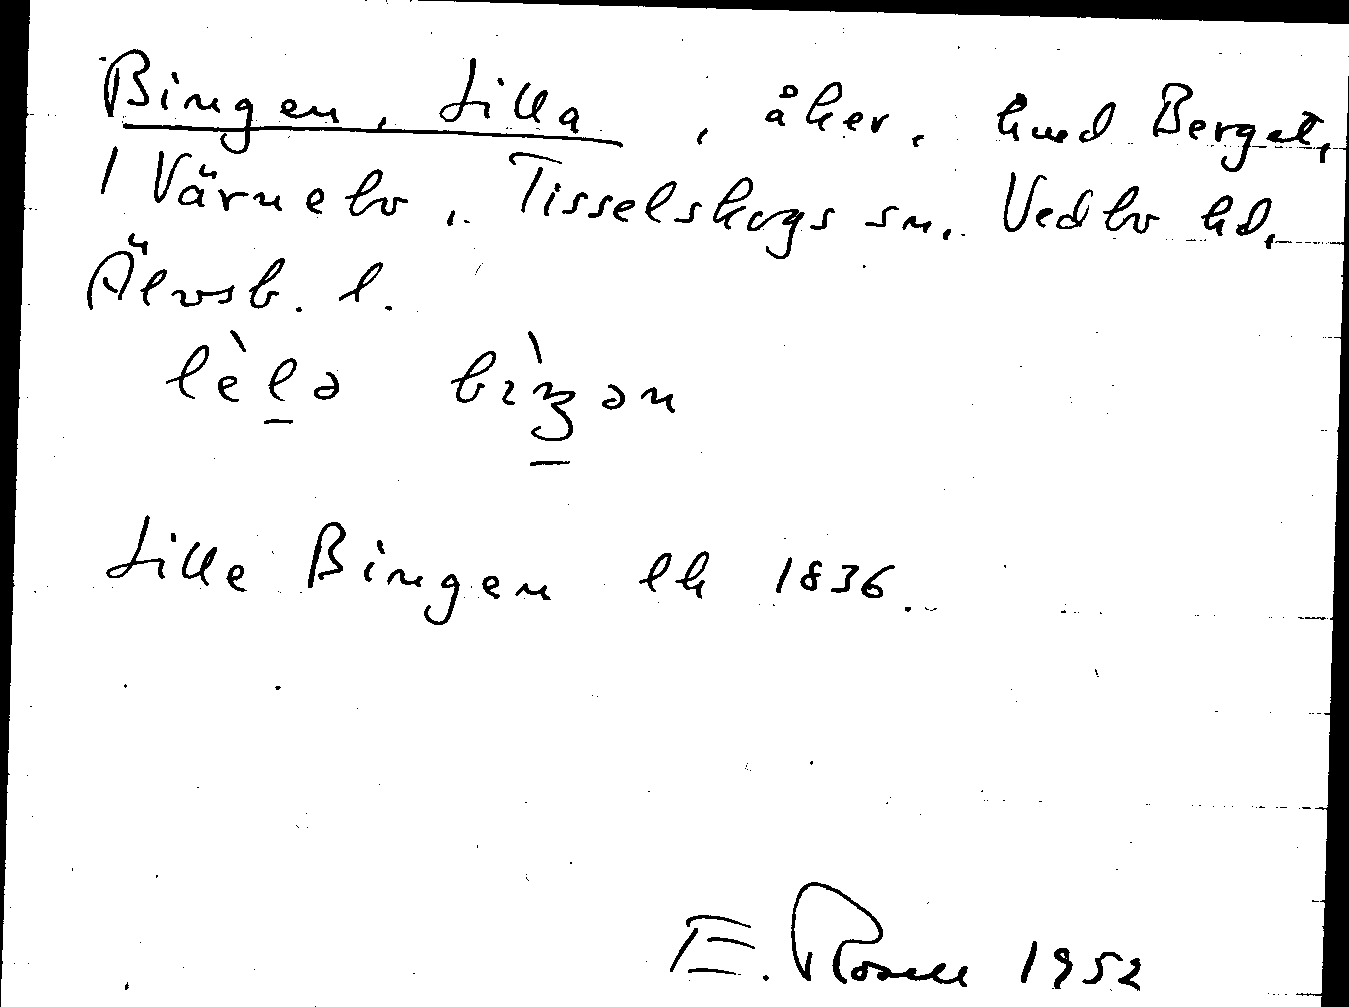 Bingen, Lilla, åker, hmd Berget,
1 Värnebo, Tisselskogs sn. Vedbo hd,
Älvsb. l.
lèlə bìŋən
Lille Bingen lk 1836.
E. Rosell 1952